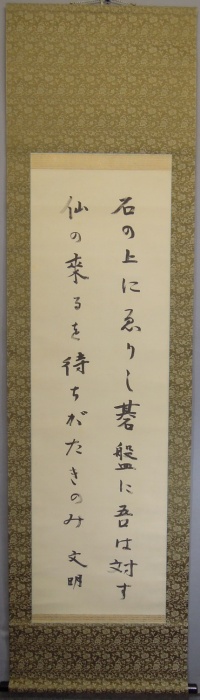 石の上にゑりし碁盤に吾は対す
仙の来るを待ちがたきのみ 文明